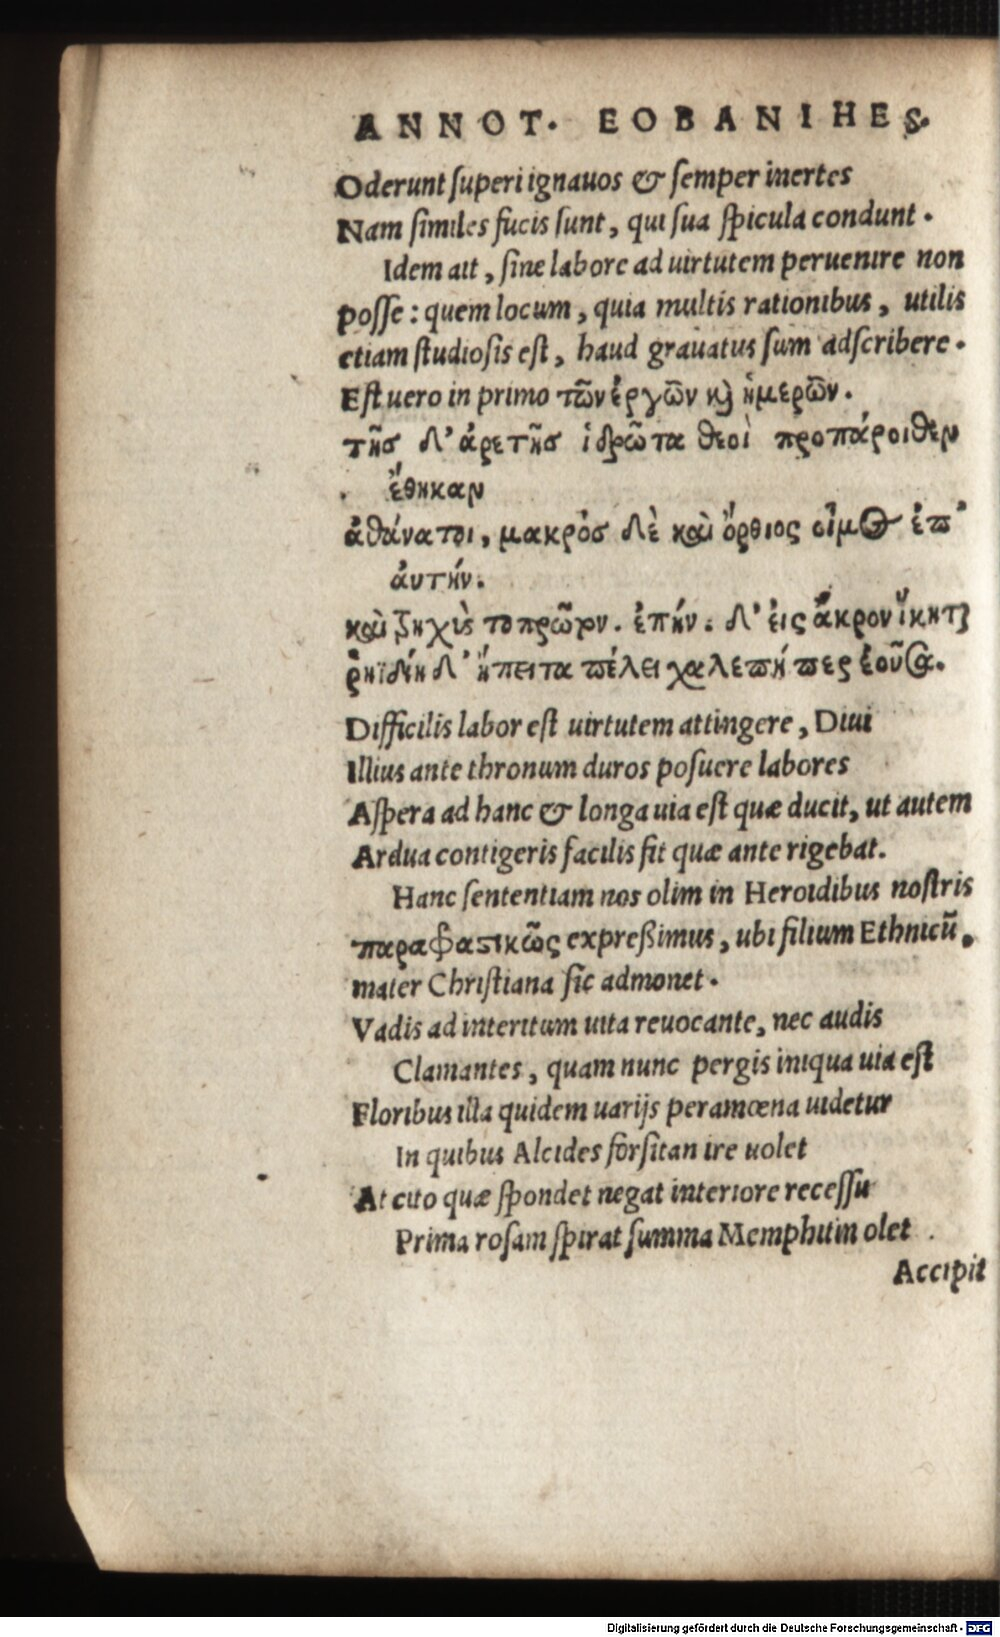 ANNOT. EOBANI HES.
Oderunt superi ignauos & semper inertes
Nam similes fucis sunt, qui sua spicula condunt.
Idem ait, sine labore ad uirtutem peruenire non
posse: quem locum, quia multis rationibus, utilis
etiam studiosis est, haud grauatus sum adscribere.
Est uero in primo τῶν ἐργῶν καὶ ἡμερῶν.
τῆσ δ' ἀρετῆσ ἱδρῶτα θεοὶ προπάροιθεν
ἔθηκαν
ἀθάνατοι, μακρὸσ δὲ καὶ ὄρθιος οἶμος ἐπ'
ἀυτήν.
καὶ τρηχὺς τοπρῶτον. ἐπήν. δ' ἐις ἄκρον ἵκηται
ῥηϊδίη δ' ἤπειτα πέλει χαλεπή περ ἐοῦσα.
Difficilis labor est uirtutem attingere, Diui
Illius ante thronum duros posuere labores
Aspera ad hanc & longa uia est quæ ducit, ut autem
Ardua contigeris facilis fit quæ ante rigebat.
Hanc sententiam nos olim in Heroidibus nostris
παραφαστικῶς expreßimus, ubi filium Ethnicū,
mater Christiana sic admonet.
Vadis ad interitum uita reuocante, nec audis
Clamantes, quam nunc pergis iniqua uia est
Floribus illa quidem uarijs peramœna uidetur
In quibus Alcides forsitan ire uolet
At cito quæ spondet negat interiore recessu
Prima rosam spirat summa Memphitin olet.
Accipit
Digitalisierung gefördert durch die Deutsche Forschungsgemeinschaft - DFG